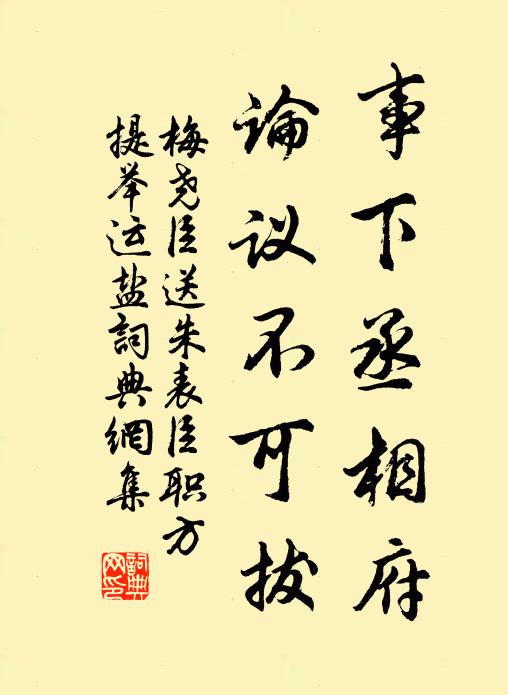 事下丞相府
論议不可拔
梅尧臣送朱表臣职方
提举运盐詞典網集
詞典網印